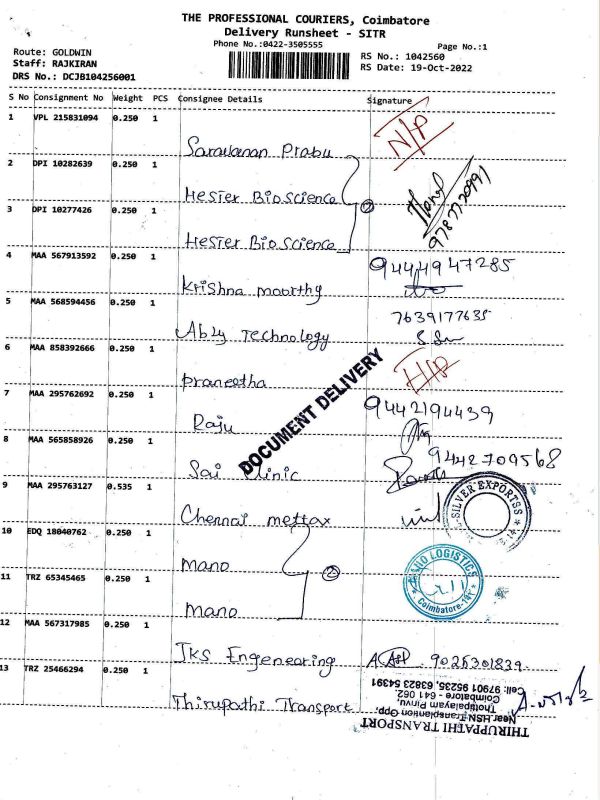 THE PROFESSIONAL COURIERS, Coimbatore
Delivery Runsheet - SITR
Phone No.:0422-3505555
Page No.:1
Route: GOLDWIN
Staff: RAJKIRAN
DRS No.: DCJB104256001
RS No.: 1042560
RS Date: 19-Oct-2022
S No Consignment No Weight PCS Consignee Details Signature
1 VPL 215831094 0.250 1
Saravanan Prabu N/P
2 DPI 10282639 0.250 1
Hester BioScience
3 DPI 10277426 0.250 1
Hester BioScience 2 9787720991
4 MAA 567913592 0.250 1
Krishna moorthy 9444947285
5 MAA 568594456 0.250 1
Ably Technology 7639177635
6 MAA 858392666 0.250 1
Praneetha
7 MAA 295762692 0.250 1
Raju 9442194439
8 MAA 565858926 0.250 1
Sai Clinic 9442709568
9 MAA 295763127 0.535 1
Chennai mettax
10 EDQ 18040762 0.250 1
Mano
11 TRZ 65345465 0.250 1
Mano 2
12 MAA 567317985 0.250 1
JKS Engeneering 9026301839
13 TRZ 25466294 0.250 1
Thirupathi Transport
DOCUMENT DELIVERY
SILVER EXPORTSS
NANO LOGISTICS
Coimbatore-14
THIRUPPATHI TRANSPORT
Near HSN Transplantion Opp.
Thottipalayam Pirivu,
Coimbatore - 641 062.
Cell: 97901 95235, 63823 54391